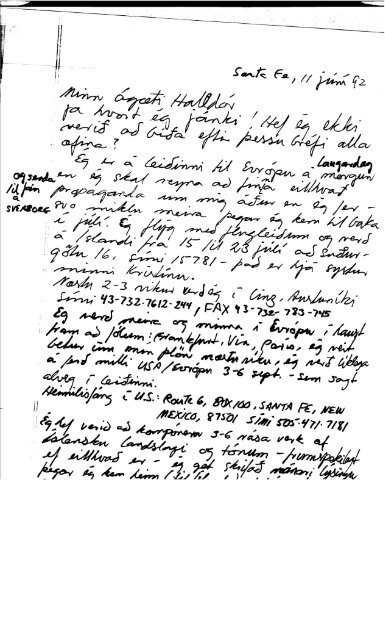 Santa Fe, 11 júní 92
Minn ágæti Halldór
já hvort ég jánki! Hef ég ekki
verið að bíða eftir þessu bréfi alla
æfina?
Ég er á leiðinni til Evrópu á morgun
Laugardag
en ég skal reyna að finna eitthvað
og senda
til þín
á
SVEABORG
propaganda um mig áður en ég fer -
svo miklu meira þegar ég kem til baka
í júlí. Ég flýg með flugleiðum og verð
á Íslandi frá 15 til 23 júlí að Suður-
götu 16, sími 15781 - það er hjá systur
minni Kristínu.
Næstu 2-3 vikur verð ég í Linz, Austurríki
Sími 43-732-7612-244, FAX 43-732-783-745
Ég verð meira og minna í Evrópu í haust
fram að jólum: Frankfurt, Vín, París, ég veit
betur um mín plön næstu viku, ég verð líklega
á ferð milli USA/Evrópu 3-6 sept. - sem sagt
alveg í leiðinni.
Heimilisfang í U.S: Route 6, BOX 100, SANTA FE, NEW
MEXICO, 87501 SÍMI 505-471-7181
Ég hef verið að kompónera 3-6 rása verk af
íslensku landslagi og tónum -
ef eitthvað er - ég get skilað nánari lýsingu
þegar ég kem heim